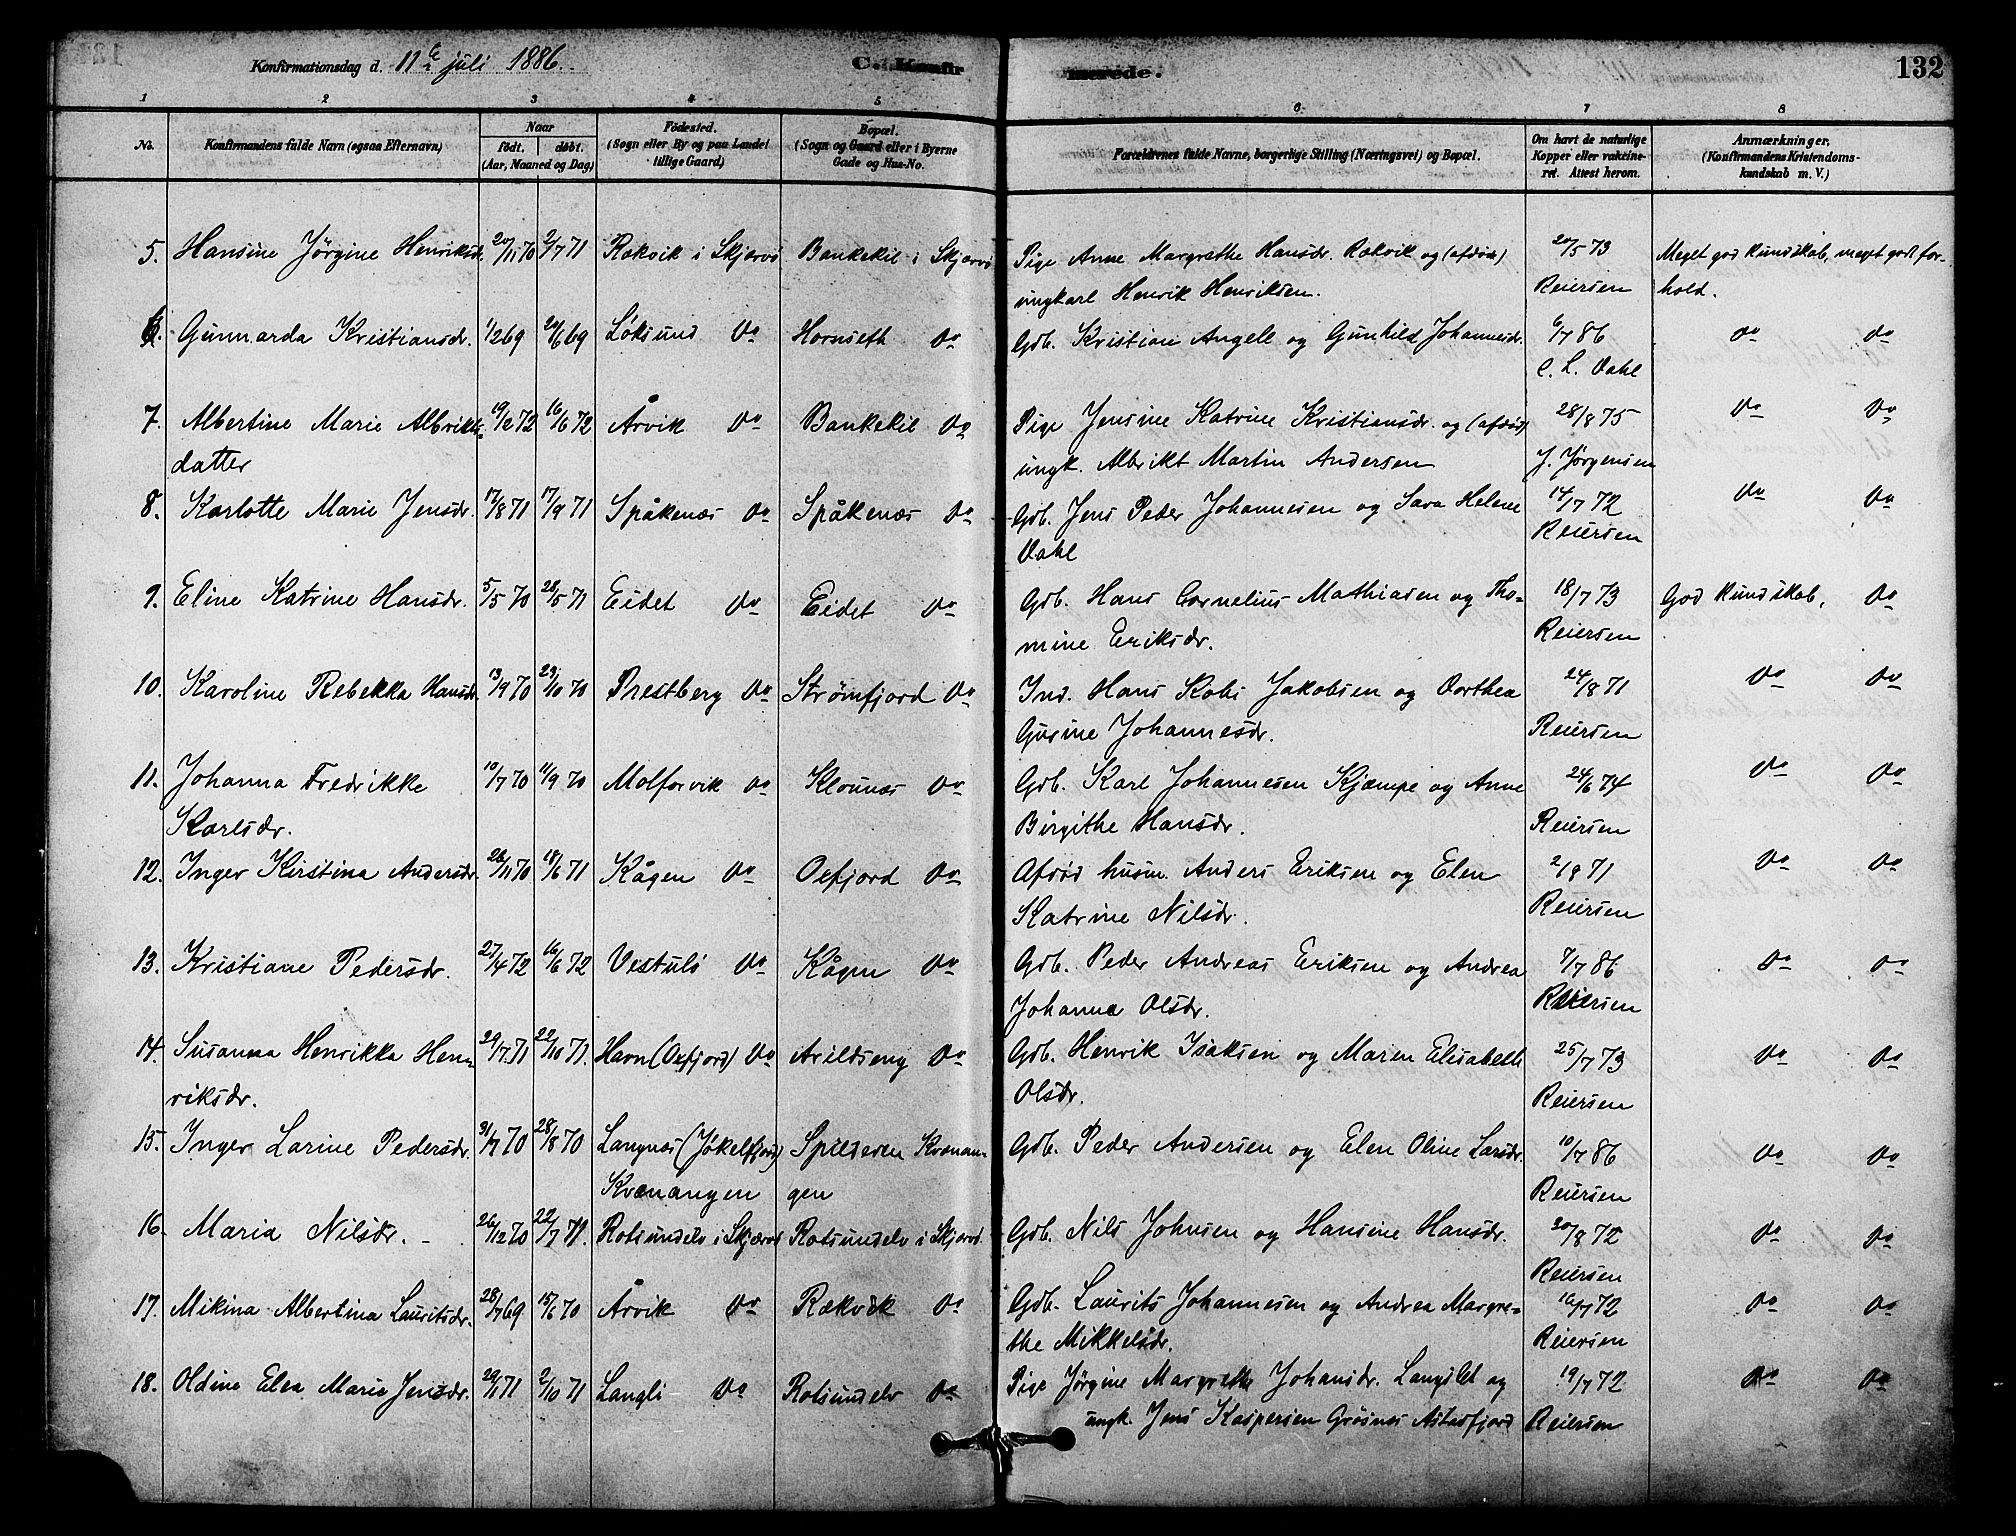 Konfirmationsdag d. 11te juli 1886.
C. Konfirmerede.
132
1 2 3 4 5 6 7 8
No.
Konfirmandens fulde Navn (ogsaa Efternavn)
Naar
født. døbt.
(Aar, Maaned og Dag)
Fødested.
(Sogn eller By og paa Landet
tillige Gaard)
Bopæl.
(Sogn og Gaard eller i Byerne
Gade og Hus-No.
Forældrenes fulde Navne, borgerlige Stilling (Næringsvei) og Bopæl.
Om havt de naturlige
Kopper eller vaktine-
ret. Attest herom.
Anmærkninger.
(Konfirmandens Kristendoms-
kundskab m. V.)
5. Hansine Jørgine Henriksdr. 20/11 70 2/7 71 Rakvik i Skjervø Bankekil i Skjervø Pige Anne Margrethe Hansdr. Rakvik og (afdøde) 20/5 73 Meget god kundskab, meget godt for-
ungkarl Henrik Henriksen. Reiersen hold.
6. Gunnarda Kristiansdr. 1/2 69 20/6 69 Løksund do Hornseth do Gdb. Kristian Angell og Gunhild Johannesdr. 6/7 86 do do
C. L. Dahl
7. Albertine Marie Albrikts- 19/2 72 16/6 72 Årvik do Bankekil do Pige Jensine Katrine Kristiansdr. og (afdød) 28/8 75 do do
datter ungk. Albrikt Martin Andersen J. Jørgensen
8. Karlotte Marie Jensdr. 17/8 71 17/9 71 Spåkenæs do Spåkenæs do Gdb. Jens Peder Johannesen og Sara Helene 14/7 72 do do
Dahl Reiersen
9. Eline Katrine Hansdr. 5/5 70 28/5 71 Eidet do Eidet do Gdb. Hans Cornelius Mathiasen og Tho- 18/7 73 God kundskab, do
mine Eriksdr. Reiersen
10. Karoline Rebekka Hansdr. 13/9 70 23/10 70 Prestberg do Strømfjord do Ind. Hans Kobi Jakobsen og Dorthea 24/8 71 do do
Gurine Johannesdr. Reiersen
11. Johanna Fredrikke 10/7 70 11/9 70 Molforvik do Klounæs do Gdb. Karl Johannesen Kjæmpe og Anne 24/6 74 do do
Karlsdr. Birgithe Hansdr. Reiersen
12. Inger Kirstina Andersdr. 28/11 70 18/6 71 Kågen do Oxfjord do Afdød husm. Anders Eriksen og Elen 2/8 71 do do
Katrine Nilsdr. Reiersen
13. Kristiane Pedersdr. 27/4 72 16/6 72 Vestulø do Kågen do Gdb. Peder Andreas Eriksen og Andrea 7/7 86 do do
Johanna Olsdr. Reiersen
14. Susanna Henrikka Hen- 29/7 71 22/10 71. Havn (Oxfjord) do Arildseng do Gdb. Henrik Isaksen og Maren Elisabeth 25/7 73 do do
riksdr. Olsdr. Reiersen
15. Inger Larine Pedersdr. 31/7 70 28/8 70 Langnes (Jøkelfjord) Spilderen Kvænan- Gdb. Peder Andersen og Elen Oline Larsdr. 10/7 86 do do
Kvænangen gen Reiersen
16. Maria Nilsdr. 26/12 70 22/7 71. Rotsundelv i Skjervø Rotsundelv i Skjervø. Gdb. Nils Johnsen og Hansine Hansdr. 20/8 72 do do
Reiersen
17. Mikina Albertina Lauritsdr. 28/7 69 15/6 70 Årvik do Rækvik do Gdb. Laurits Johannesen og Andrea Margre- 16/7 72 do do
the Mikkelsdr. Reiersen
18. Oldine Elen Marie Jensdr. 29/1 71 2/10 71 Langli do Rotsundelv do Pige Jørgine Margrethe Johansdr. Langslet og 19/7 72 do do
ungk. Jens Kaspersen Grøsnes Astasfjord Reiersen